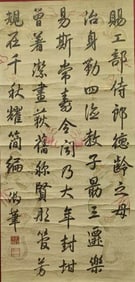 賜工部侍郎德齡之母
治身勤四德教子最三遷樂
易斯常嘉令聞乃大年封坩
曾著潔畫荻舊稱賢彤管芳
規在千秋耀簡編